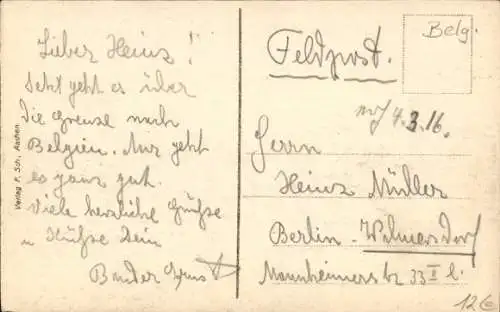 Lieber Heinz!
Jetzt geht es über
die Grenze nach
Belgien. Mir geht
es ganz gut.
Viele herzliche Grüße
u Küße Dein
Bruder Ernst
Verlag F. Sch., Aachen.
Feldpost.
Belg.
4.3.16.
Herrn
Heinz Müller
Berlin-Wilmersdorf
Mannheimerstr 33 II l.
12€